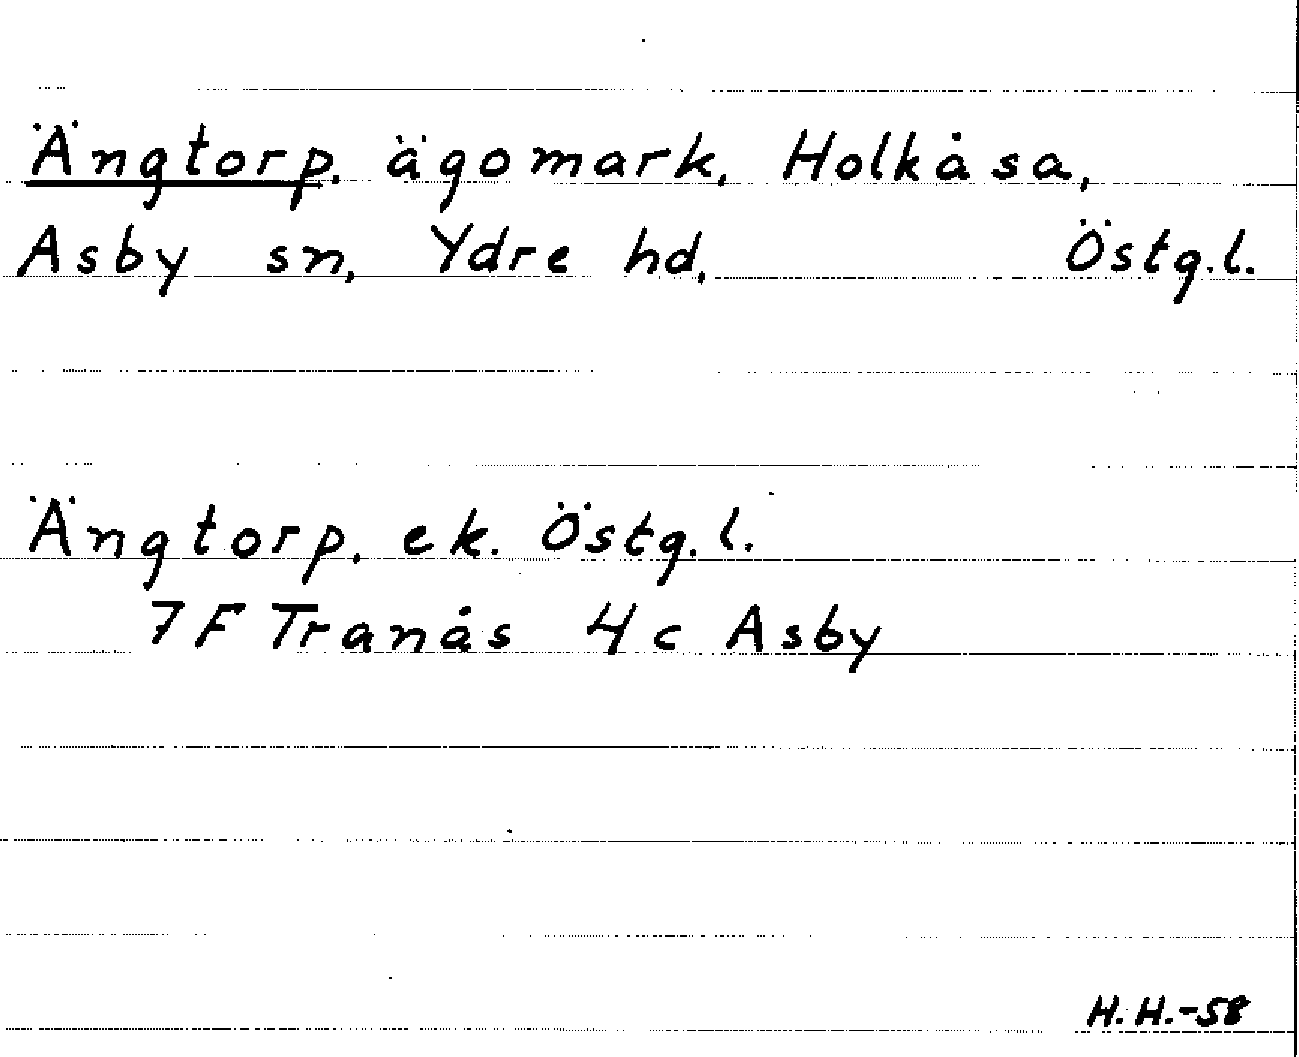 Ängtorp, ägomark, Holkåsa,
Asby sn, Ydre hd, Östg.l.
Ängtorp, ek. Östg.l.
7F Tranås 4c Asby
H.H.-58